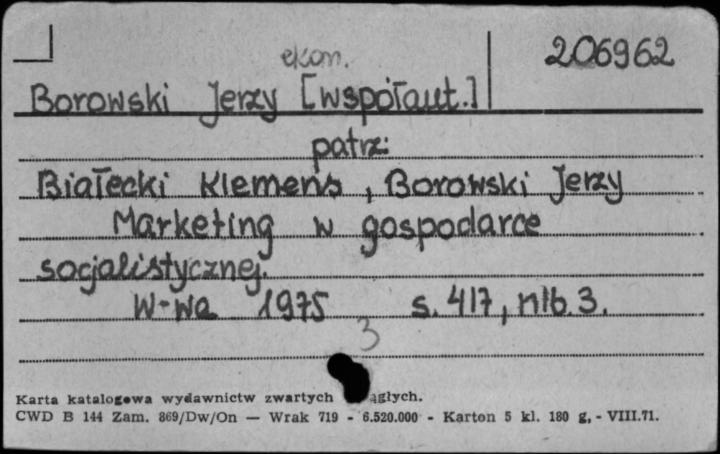 ekon.
206962
Borowski Jerzy [współaut.]
patrz:
Białecki Klemens, Borowski Jerzy
Marketing w gospodarce
socjalistycznej.
W-wa 1975 s. 417, nlb. 3.
3
Karta katalogowa wydawnictw zwartych ągłych.
CWD B 144 Zam. 869/Dw/On — Wrak 719 - 6.520.000 - Karton 5 kl. 180 g, - VIII.71.